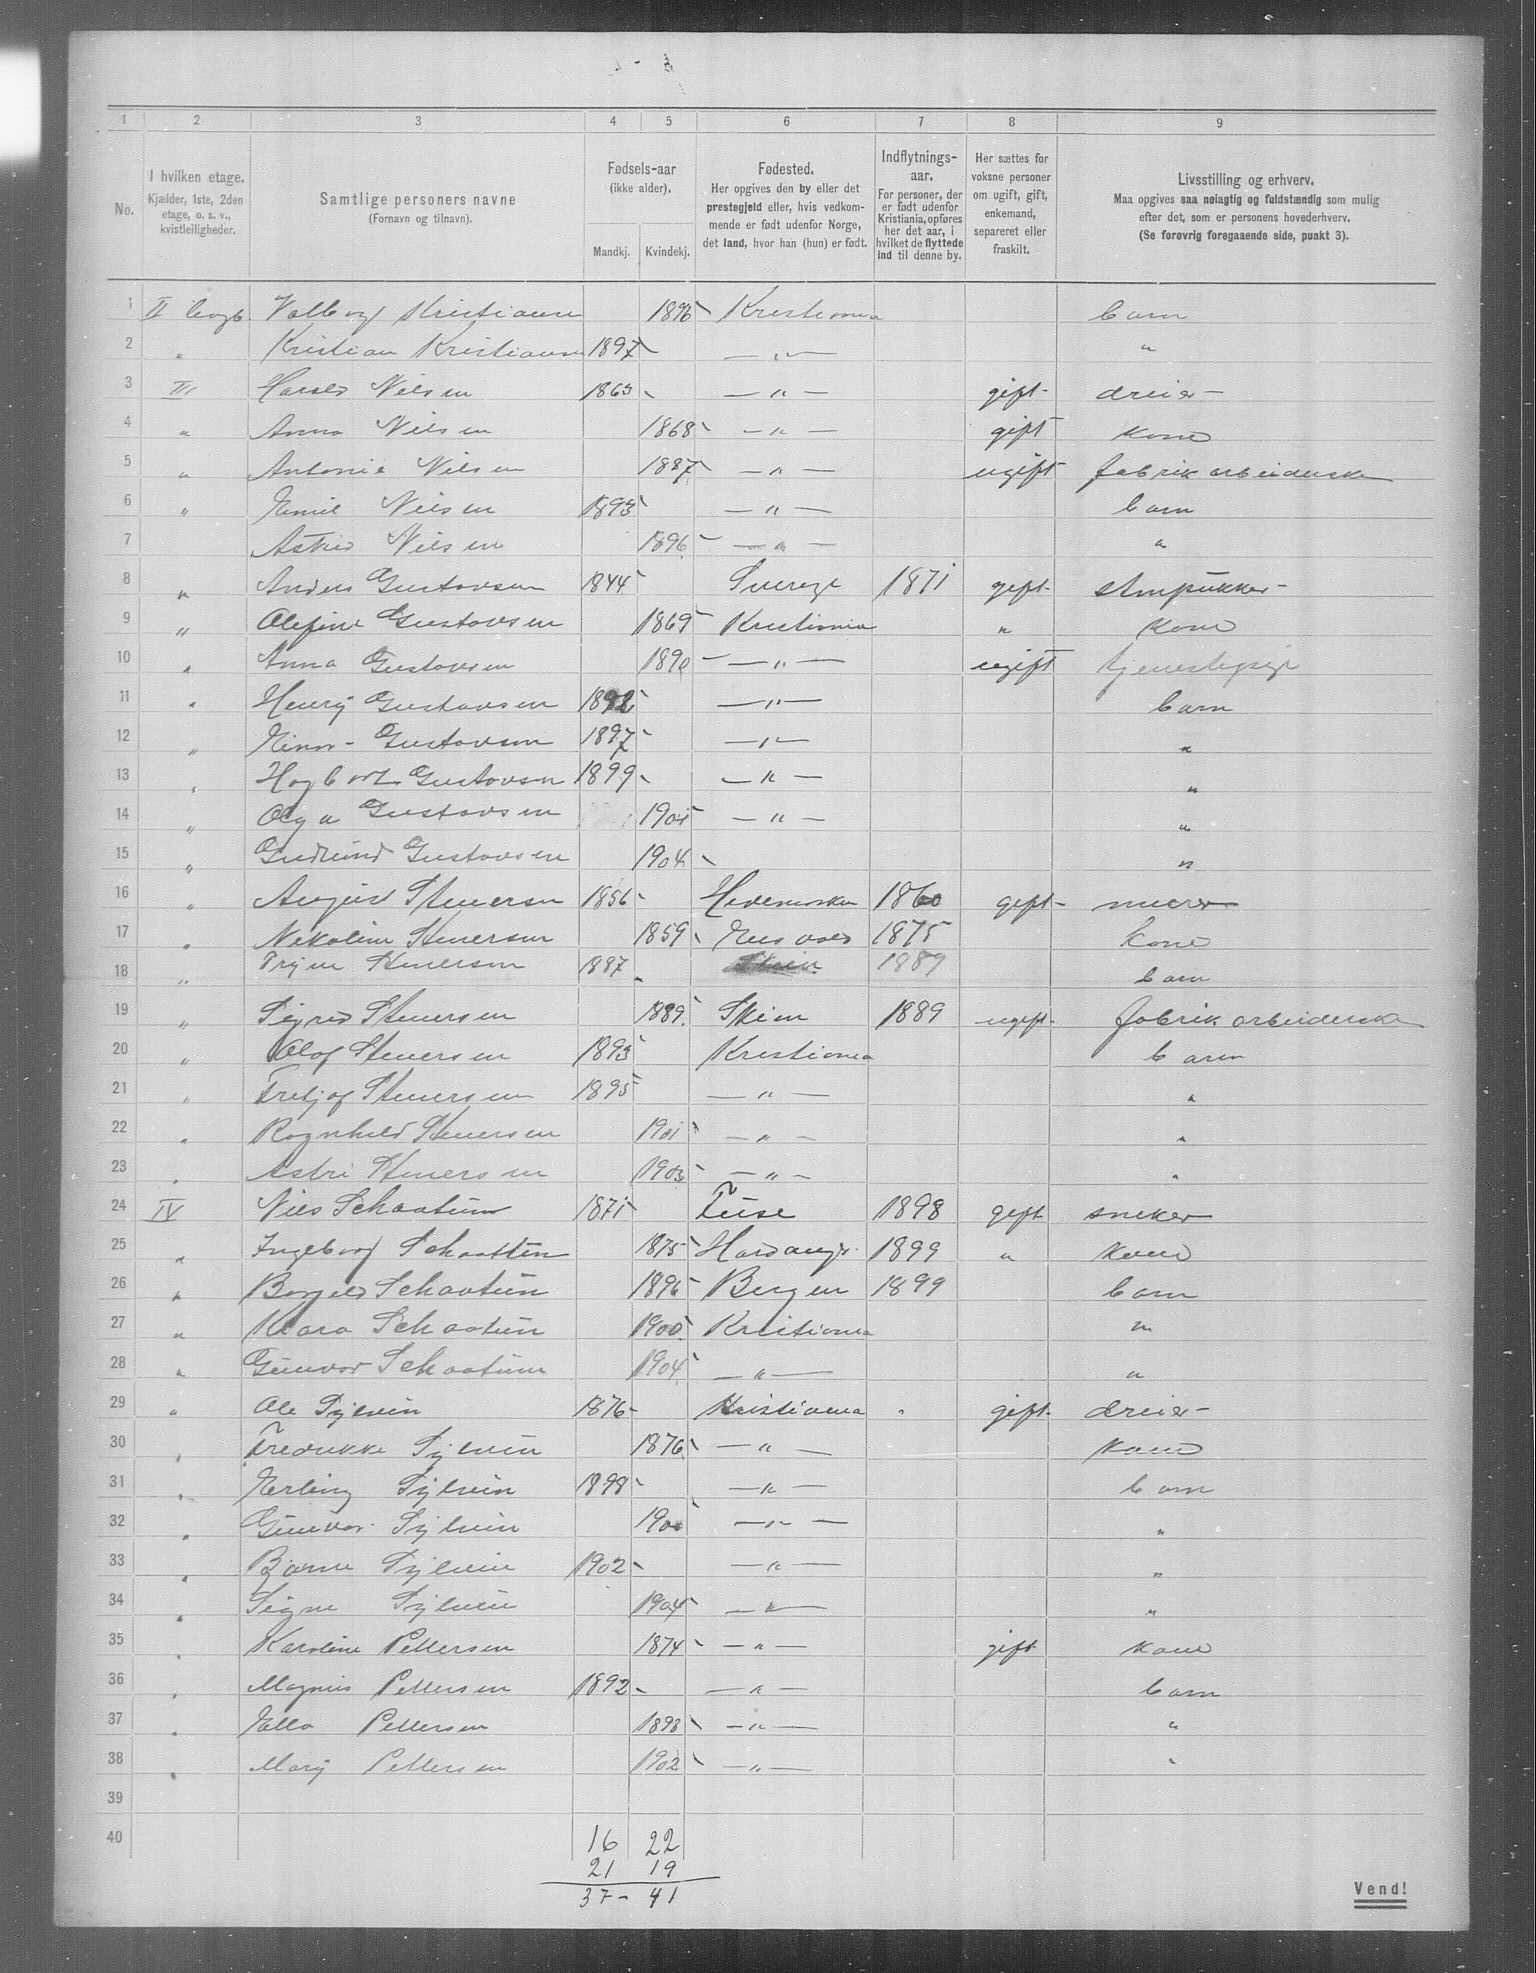 1 2 3 4 5 6 7 8 9
No.
I hvilken etage.
Kjælder, 1ste, 2den
etage, o. s. v.,
kvistleiligheder.
Samtlige personers navne
(Fornavn og tilnavn).
Fødsels-aar
(ikke alder).
Mandkj. Kvindekj.
Fødested.
Her opgives den by eller det
prestegjeld eller, hvis vedkom-
mende er født udenfor Norge,
det land, hvor han (hun) er født.
Indflytnings-
aar.
For personer, der
er født udenfor
Kristiania, opføres
her det aar, i
hvilket de flyttede
ind til denne by.
Her sættes for
voksne personer
om ugift, gift,
enkemand,
separeret eller
fraskilt.
Livsstilling og erhverv.
Maa opgives saa nøiagtig og fuldstændig som mulig
efter det, som er personens hovederhverv.
(Se forøvrig foregaaende side, punkt 3).
1 II Valborg Kristiansen 1896 Kristiania barn
2 " Kristian Kristiansen 1897 — " — "
3 III Harald Nilsen 1863 — " — gift dreier
4 " Anna Nilsen 1868 — " — gift kone
5 " Antonie Nilsen 1887 — " — ugift fabrikarbeiderske
6 " Emil Nilsen 1893 — " — barn
7 Astrid Nilsen 1896 — " — "
8 " Anders Gustavsen 1844 Sverige 1871 gift stenpukker
9 " Olefine Gustavsen 1869 Kristiania " kone
10 " Anna Gustavsen 1890 — " — ugift tjenestepige
11 " Henry Gustavsen 1892 — " — barn
12 " Einar Gustavsen 1897 — " — "
13 " Hagbart Gustavsen 1899 — " — "
14 " Olga Gustavsen 1901 — " — "
15 " Gudrund Gustavsen 1904 "
16 " August Stenersen 1856 Hedemarken 1860 gift murer
17 " Nikoline Stenersen 1859 Eidsvold 1875 kone
18 " Stenersen 1887 Skien 1889 barn
19 " Sigrid Stenersen 1889 Skien 1889 ugift fabrikarbeiderske
20 " Olaf Stenersen 1893 Kristiania barn
21 " Fretjof Stenersen 1895 — " — "
22 " Ragnhild Stenersen 1901 — " — "
23 " Astri Stenersen 1903 — " — "
24 IV Nils Schaatun 1871 1898 gift sneker
25 " Ingeborg Schaatun 1875 Hardanger 1899 " kone
26 " Borgild Schaatun 1896 Bergen 1899 barn
27 " Klara Schaatun 1900 Kristiania "
28 " Gunvor Schaatun 1904 — " — "
29 " Ole Sylvin 1876 Kristiania " gift dreier
30 " Fredrikke Sylvin 1876 — " — kone
31 " Erling Sylvin 1898 — " — barn
32 " Gunvor Sylvin 1900 — " — "
33 " Bjarne Sylvin 1902 — " — "
34 " Signe Sylvin 1904 — " — "
35 " Karoline Pettersen 1874 — " — gift kone
36 " Magnus Pettersen 1892 — " — barn
37 " Ella Pettersen 1898 — " — "
38 " Mary Pettersen 1902 — " — "
39
40 16 22
21 19
37 - 41
Vend!